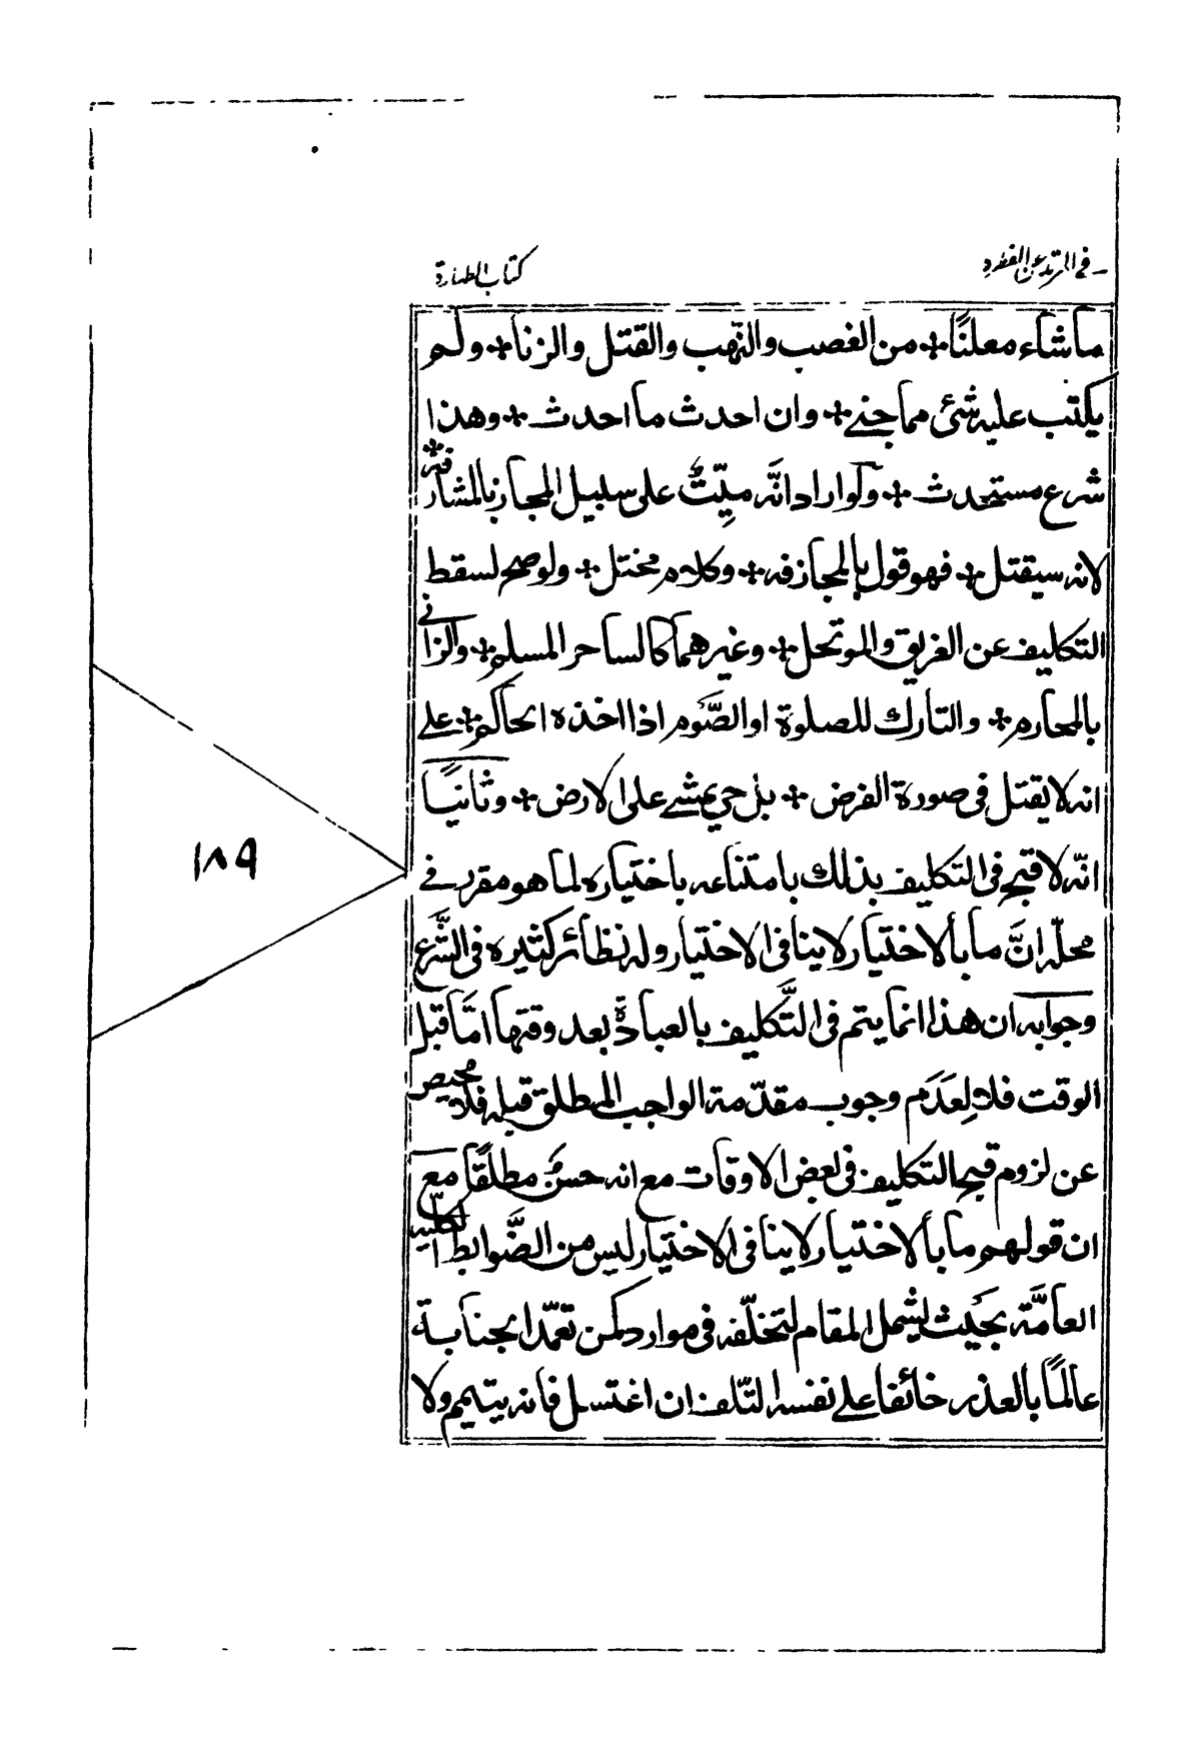 في المرتد عن الفطرة
كتاب الطهارة
ما شاء معلنًا ✢ من الغصب والنّهب والقتل والزنا ✢ ولم
يكتب عليه شئ مما جنے ✢ وان احدث ما احدث ✢ وهذا
شرع مستحدث ✢ ولو اراد انّه ميّتٌ على سبيل المجاز بالمشارفة ✢
لانه سيقتل ✢ فهو قول بالمجازفه ✢ وكلام مختل ✢ ولو صح لسقط
التكليف عن الغريق والموتحل ✢ وغيرهما كالساحر المسلم ✢ والزاني
بالمحارم ✢ والتارك للصلوة او الصَّوم اذا اخذه الحاكم ✢ على
انه لا يقتل فى صورة الفرض ✢ بل حي يمشے على الارض ✢ وثانيًا
انّه لا قبح فى التكليف بذلك بامتناعه باختياره لما هو مقرر في
محلّه انَّ ما بالاختيار لا ينافى الاختيار وله نظائر كثيره فى الشَّرع
وجوابه ان هذا انما يتم فى التَّكليف بالعبادة بعد وقتها امّا قبل
الوقت فلا لِعَدَم وجوب مقدّمة الواجب المطلق قبله فلا محيص
عن لزوم قبح التكليف فى بعض الاوقات مع انه حسنٌ مطلقًا مع
ان قولهم ما بالاختيار لا ينافى الاختيار ليس من الضَّوابط الكلّية
العامَّة بحَيث يشمل المقام لتخلّفه فى موارد كمن تعمّد الجنابة
عالمًا بالعذر خائفا على نفسه التّلف ان اغتسل فانه يتيمم ولا
١٨٩